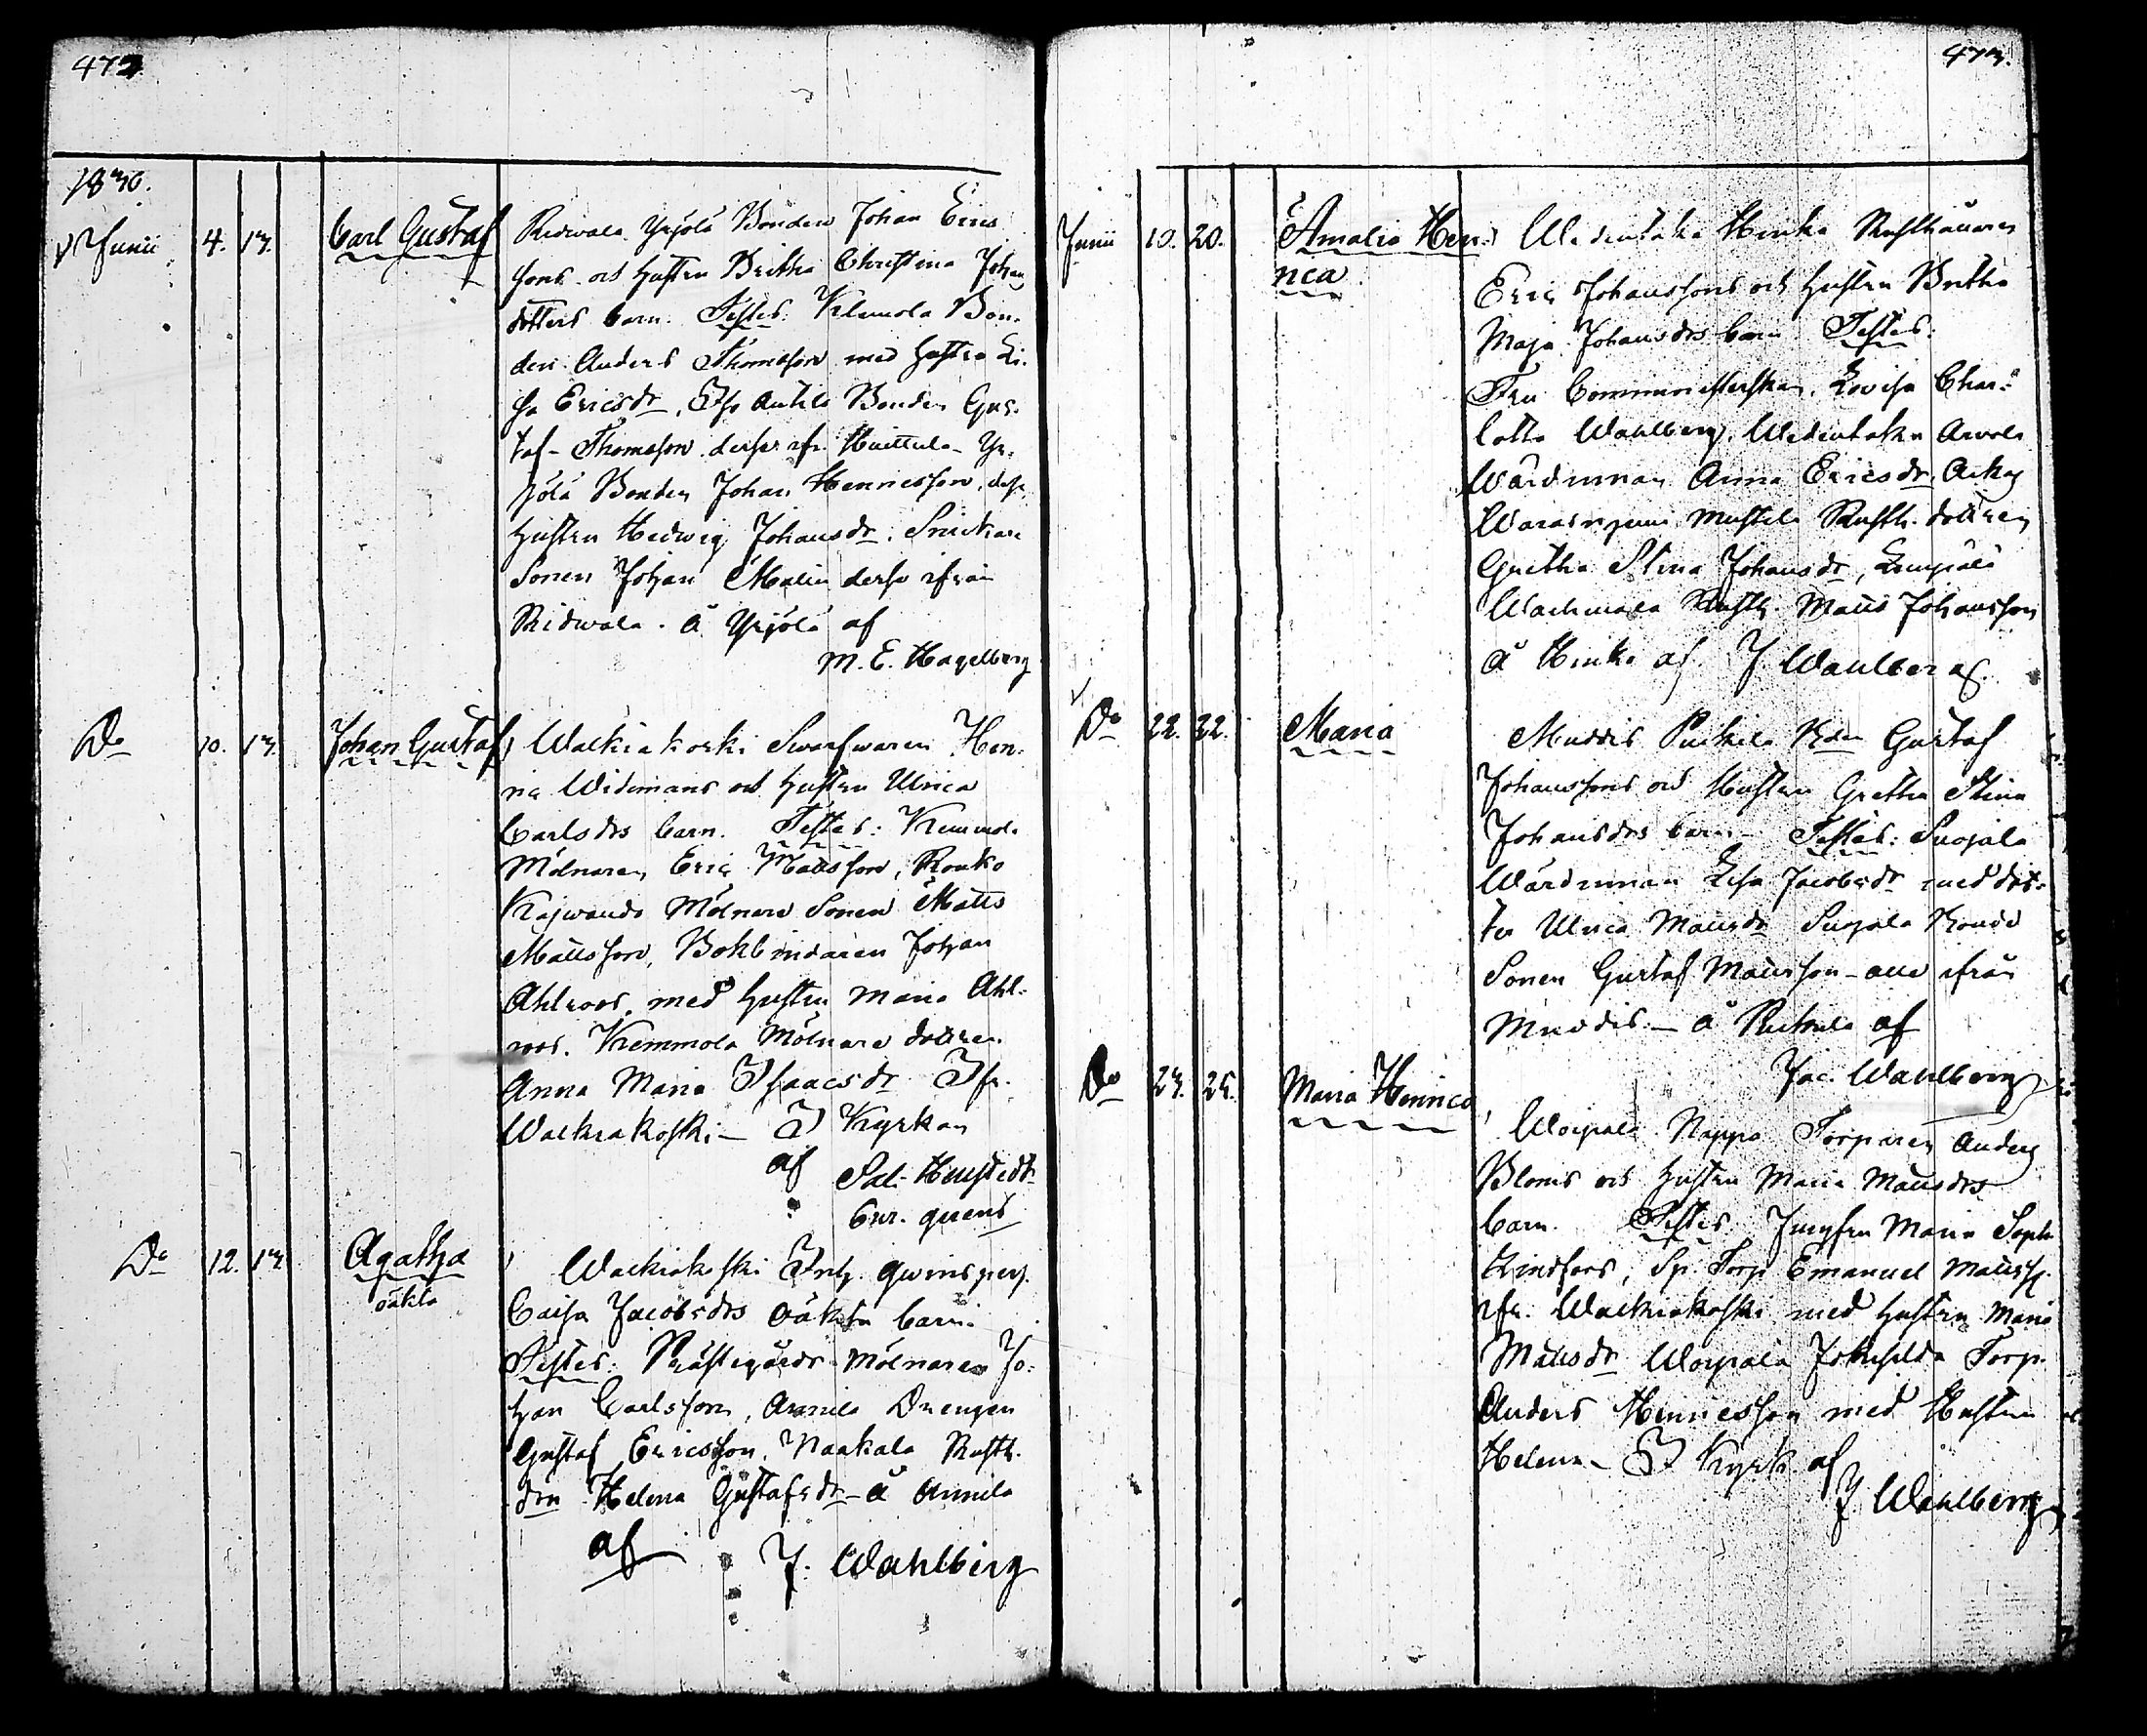 472
1830.
Junii 4. 13. Carl Gustaf Ridvala Yrjölä Bonden Johan Erics
sons och hustru Britha Christina Johans
dotters barn. Testes: Klemola Bon-
den Anders Thomasson med hustru Li-
sa Ericsdr, Bonden Gus-
taf Thomasson Huittula Yr-
jölä Bonden Johan Henricsson, dess
hustru Hedwig Johansdr, Snickare
Sonen Johan Malin ifrån
Ridvala. å Yrjölä af
M. E. Hagelberg
Do 10. 13. Johan Gustaf Walkiakoski Swarfwaren Hen-
ric Widemans och hustru Ulrica
Carlsdrs barn. Testes: Kemmola
Mölnaren Eric Mattsson, Rouko
Mölnare Sonen Matts
Mattsson, Bokbindaren Johan
Ahlroos med hustru Maria Ahl-
roos. Kemmola Mölnare dottren
Anna Maria Isaacsdr Ifr.
Walkiakoski – I Kyrkan
af
Do 12. 13. Agatha Walkiakoski Inh. qwinspers.
oäkta
Caisa Jacobsdrs oäkta barn.
Testes: Prästegårds Mölnaren Jo-
han Carlsson, Annila Drengen
Gustaf Ericsson, Naakala Rusth.
don Helena Gustafsdr – å Annila
af J. Wahlberg
473.
Junii 10. 20. Amalia Hen- Wedentaka Heuka Rusthållaren
rica
Eric Johanssons och hustru Britha
Maja Johansdrs barn Testes:
Fru Comministerskan Lovisa Char-
lotta Wahlberg, Wedentaka Arvola
Wärdinnan Anna Ericsdr,
Mustila Rusth. dottren
Gretha Stina Johansdr, Lempälä
Rusth. Matts Johansson
å af J Wahlberg.
Do 22. 22. Maria Muddis Gustaf
Johanssons och Hustru Gretha Stina
Johansdrs barn – Testes: Suojala
Wärdinnan Lisa Jacobsdr med dot-
ter Ulrica Mattsdr Suojala
Sonen Gustaf Mattsson – alla ifrån
Muddis – å af
Jac. Wahlberg
Do 23. 25. Maria Henrica Woipala Nappo Torparen Anders
Bloms och hustru Maria Mattsdrs
barn. Testes: Jungfru Maria Soph.
Lindfors, Sp. Torp. Emanuel Mattss.
ifr. Walkiakoski med hustru Maria
Mattsdr Woipala Torp.
Anders Henricsson med Hustru
Helena – I Kyrk. af
J Wahlberg